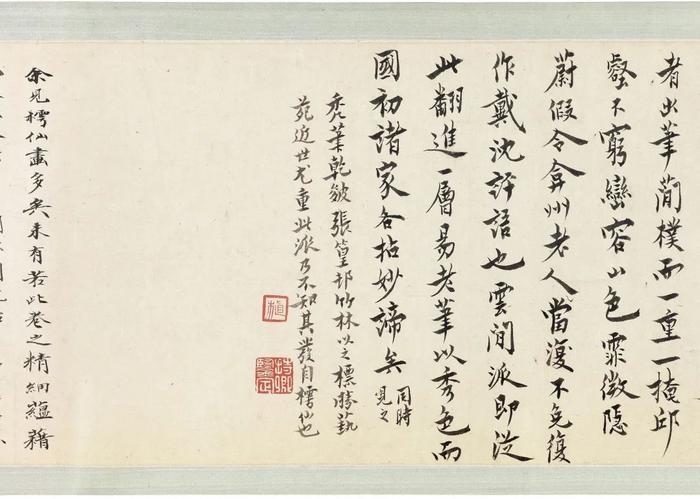 者出筆簡樸而一重一掩邱
壑不窮巒容山色霏微隱
蔚假令弇州老人當復不免復
作戴沈評語也雲間派即從
此翻進一層易老筆以秀色而
國初諸家各拈妙諦矣同時見之
禿筆乾皴張篁邨竹林以之標勝藝
苑近世尤重此派乃不知其發自樗仙也
植
余見樗仙畫多矣未有若此卷之精細蘊藉